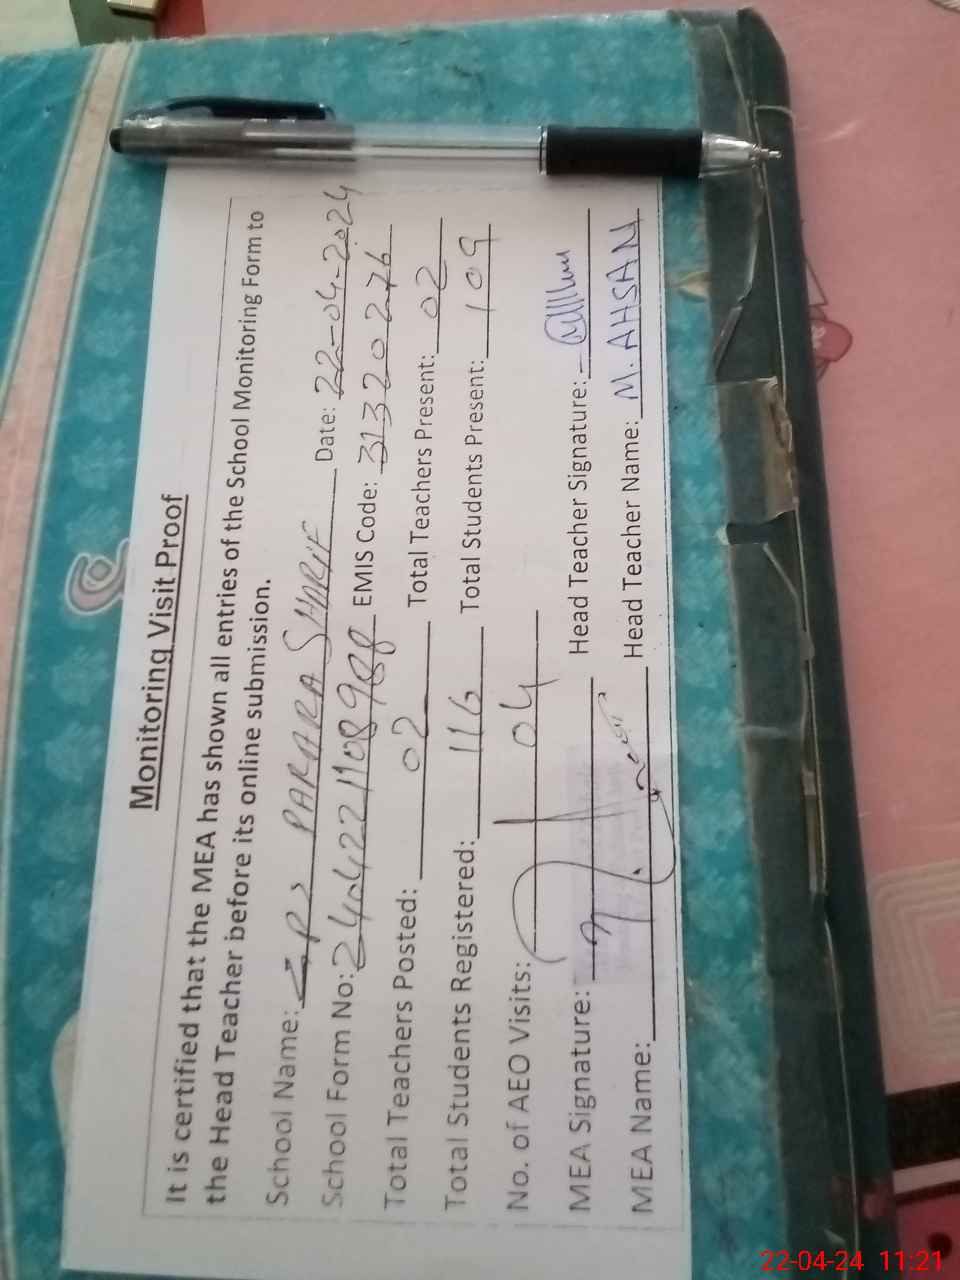 Monitoring Visit Proof
It is certified that the MEA has shown all entries of the School Monitoring Form to
the Head Teacher before its online submission.
School Name: GPS PARARA SHARIF Date: 22-04-2024
School Form No: 2404221108988 EMIS Code: 31320276
Total Teachers Posted: 02 Total Teachers Present: 02
Total Students Registered: 116 Total Students Present: 109
No. of AEO Visits: 04
MEA Signature: Head Teacher Signature:
MEA Name: Head Teacher Name: M. AHSAN
22-04-24 11:21